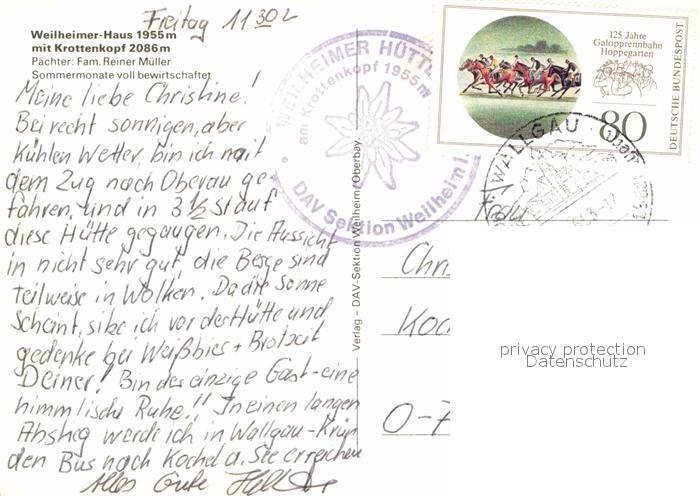 Freitag 11 30 h
Weilheimer-Haus 1955 m
mit Krottenkopf 2086 m
Pächter: Fam. Reiner Müller
Sommermonate voll bewirtschaftet
Meine liebe Christine!
Bei recht sonnigen, aber
kühlen Wetter, bin ich mit
dem Zug nach Oberau ge-
fahren, und in 3 1/2 St auf
diese Hütte gegangen. Die Aussicht
in nicht sehr gut, die Berge sind
teilweise in Wolken. Da die Sonne
scheint, sitze ich vor der Hütte und
gedenke bei Weißbier + Brotzeit
Deiner! Bin der einzige Gast - eine
himmlische Ruhe!! In einen langen
Abstieg werde ich in Wallgau-Krün
den Bus nach Kochel a. See erreichen
Alles Gute
WEILHEIMER HÜTTE
am Krottenkopf 1955 m
DAV Sektion Weilheim i.
Verlag – DAV-Sektion Weilheim/Oberbay.
125 Jahre
Galopprennbahn
Hoppegarten
DEUTSCHE BUNDESPOST
80
WALLGAU
Frau
Chri
Koc
O-7
privacy protection
Datenschutz